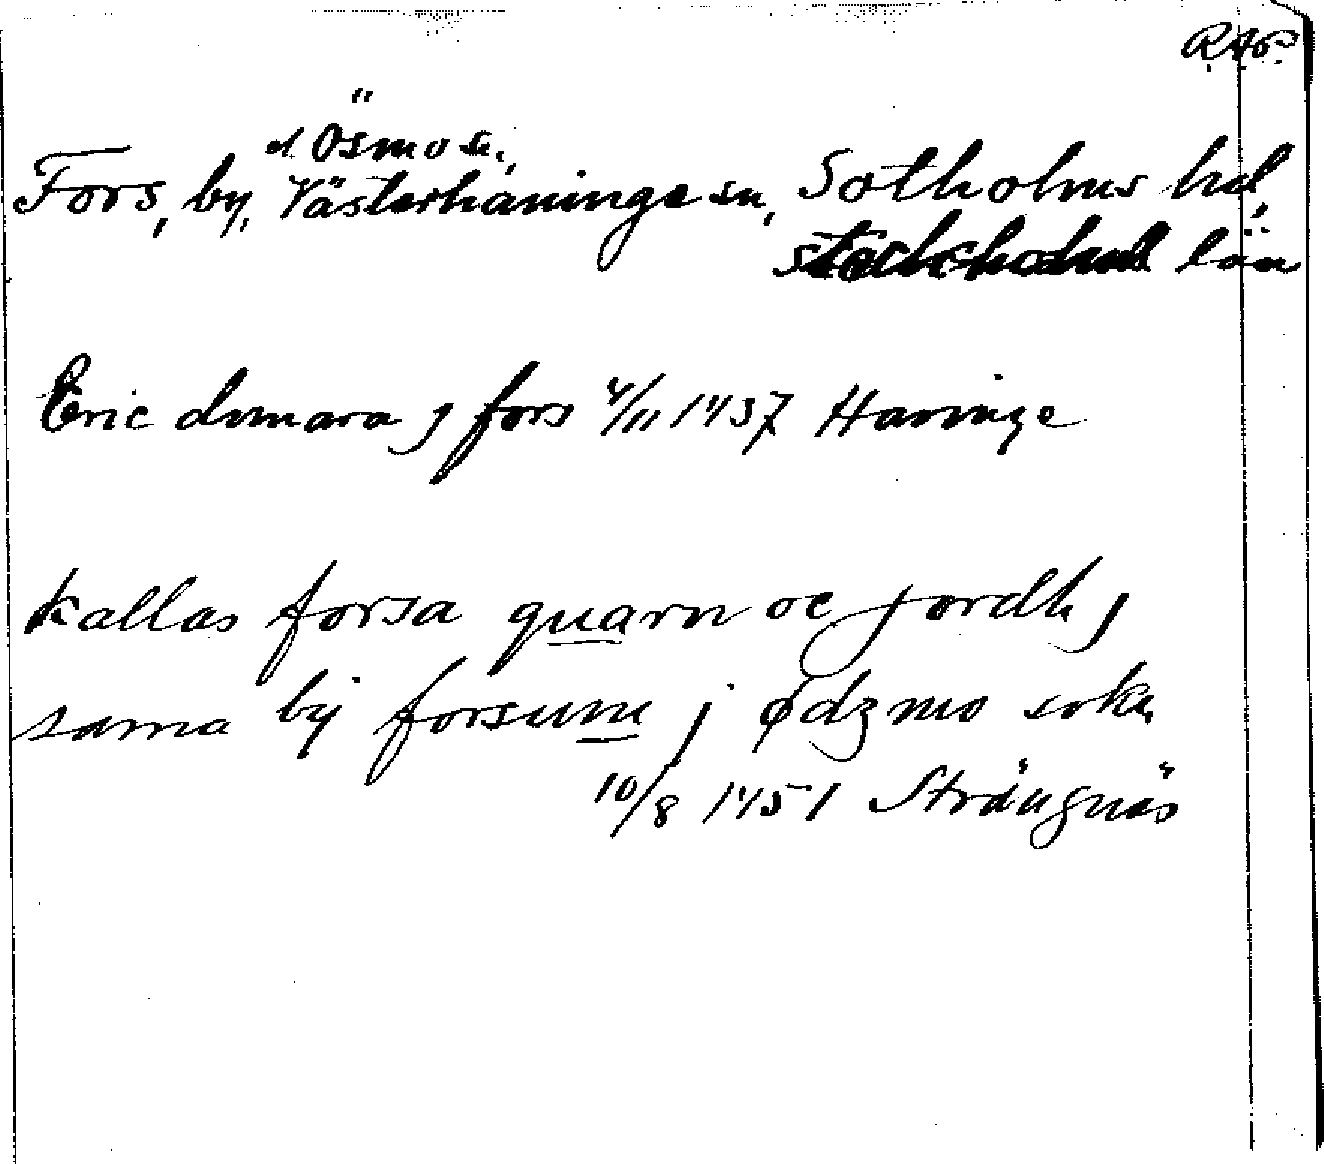 RAP.
el Ösmo sn,
Fors, by, Västerhaninge sn, Sotholms hd,
Stockholms län
Eric domara j fors 4/11 1437 Haringe
kallas forsa quarn oc jordh j
sama bij forsum j ødzmo sokn
10/8 1451 Strängnäs